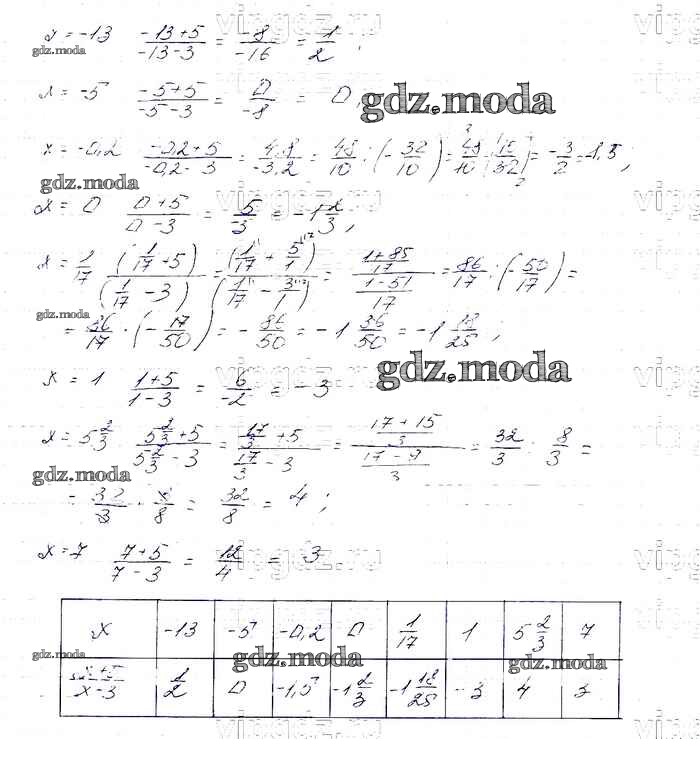 x = -13   (-13+5)/(-13-3) = -8/-16 = 1/2 ;
gdz.moda
x = -5   (-5+5)/(-5-3) = 0/-8 = 0,
gdz.moda
x = -0,2   (-0,2+5)/(-0,2-3) = 4,8/-3,2 = 48/10 : (-32/10) = 48/10 · (-10/32) = -3/2 = -1,5 ;
gdz.moda
x = 0   (0+5)/(0-3) = 5/3 = -1 2/3 ,
x = 1/17   (1/17 + 5)/(1/17 - 3) = (1/17 + 5/1)/(1/17 - 3/1) = ((1+85)/17)/((1-51)/17) = 86/17 : (-50/17) =
gdz.moda
= 86/17 · (-17/50) = -86/50 = -1 36/50 = -1 18/25 ;
gdz.moda
x = 1   (1+5)/(1-3) = 6/-2 = -3
x = 5 2/3   (5 2/3 + 5)/(5 2/3 - 3) = (17/3 + 5)/(17/3 - 3) = ((17+15)/3)/((17-9)/3) = 32/3 : 8/3 =
gdz.moda
= 32/3 · 3/8 = 32/8 = 4 ;
x = 7   (7+5)/(7-3) = 12/4 = 3
vipgdz.ru
x   -13   -5   -0,2   0   1/17   1   5 2/3   7
gdz.moda
gdz.moda
gdz.moda
(x+5)/(x-3)   1/2   0   -1,5   -1 2/3   -1 18/25   -3   4   3
vipgdz.ru